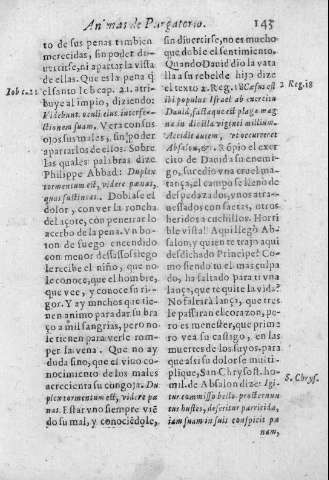 Animas de Purgatorio. 143
to de sus penas tambien
merecidas, sin poder di-
uertirse, ni apartar la vista
de ellas. Que es la pena q̃
Iob c.21 el santo Iob cap. 21. atri-
buye al impio, diziendo:
Videbunt oculi eius interfe-
ctionem suam, Vera con sus
ojos sus males, sin poder
apartarlos de ellos. Sobre
las quales palabras dize
Philippe Abbad: Duplex
tormentum est, videre pœnas,
quas sustineas. Doblase el
dolor, con ver la roncha
del açote, con penetrar lo
acerbo de la pena. Vn bo
ton de fuego encendido
con menor desassossiego
le recibe el niño, que no
le conoce, que el hombre,
que vee, y conoce su ri-
gor. Y ay muchos que tie-
nen animo para dar su bra
ço a mil sangrias, pero no
le tienen para verle rom-
per la vena. Que no ay
duda sino, que el viuo co-
nocimiento de los males
acrecienta su congoja. Du
plex tormentum est, videre pœ
nas. Estar vno siempre viẽ
do su mal, y conociẽdole,
sin diuertirse, no es mucho
que doble el sentimiento.
Quando Dauid dio la vata
lla a su rebelde hijo dize
el texto 2. Reg. 18 Cæsus est 2 Reg. 18
ibi populus Israel ab exercitu
Dauid, factaque est plaga mag
na in die illa viginti millium.
Accidit autem, vt occurreret
Absalon, &c. Rõpio el exer
cito de Dauid a su enemi-
go, sucedio vna cruel ma-
tança, el campo se lleno de
despedaçados, vnos atra-
uessados con saetas, otros
heridos a cuchillos. Horri
ble vista! Aqui llegò Ab-
salon, y quien te trajo aqui
desdichado Principe? Co
mo siendo tu el mas culpa
do, ha faltado para ti vna
lança, que te quite la vida?
No faltarà lança, que tres
le passaran el coraçon, pe-
ro es menester, que prime
ro vea su castigo, en las
muertes de los suyos, para
que assi su dolor se multi-
plique, San Chrysost. ho- S. Chrys.
mil. de Absalon dize: Igi-
tur commisso bello prosternun
tur hostes, deseritur parricida,
iam suam in suis conspicit pœ
nam,